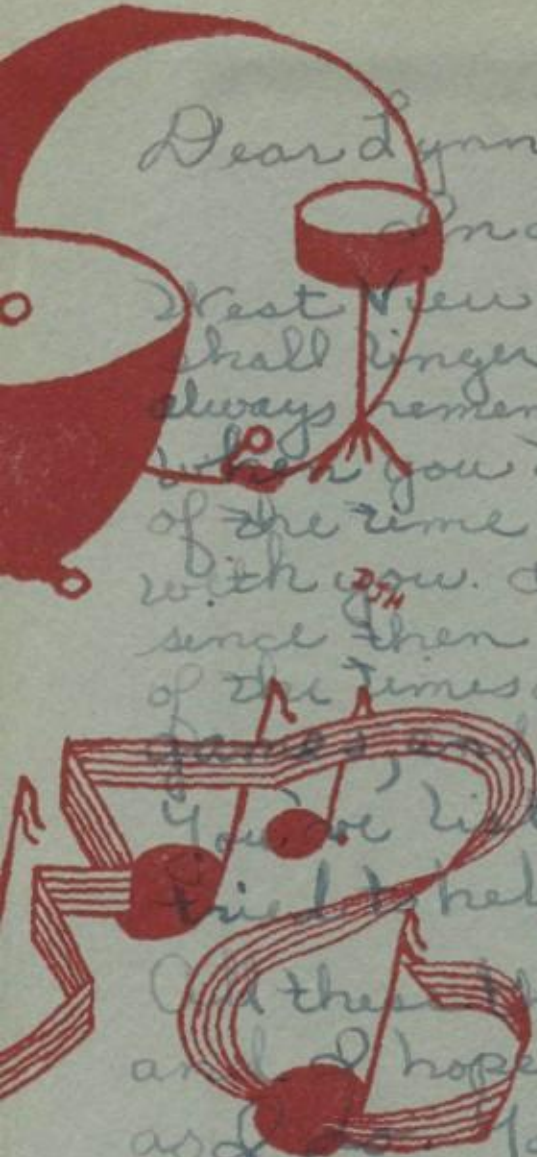 Dear Lynn
In a
West View
shall linger
always remem
when you
of the time
with you. I
DJH
since then
of the times
games, and
You've list
tried to hel
All these th
and I hope
as I do. Yo